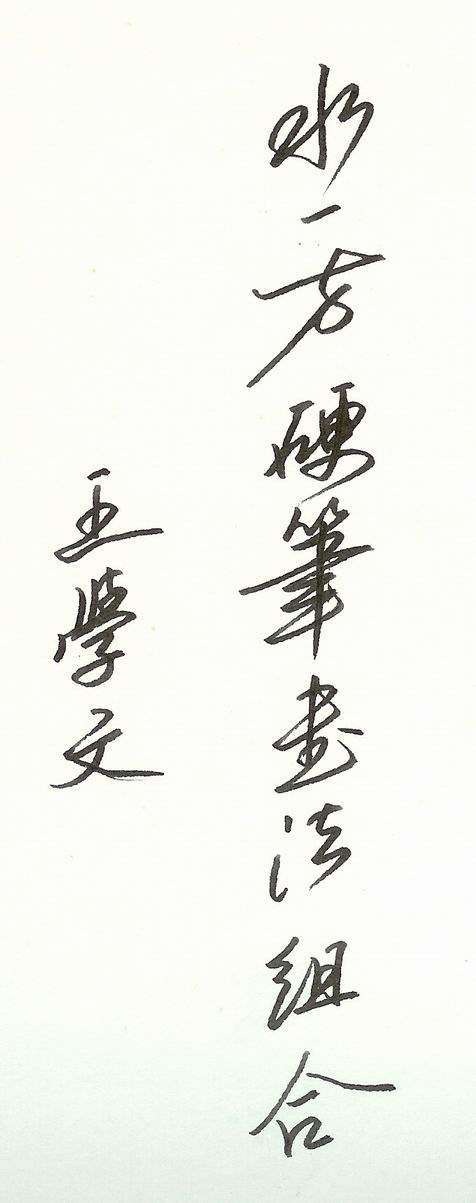 水一方硬筆書法組合
王學文